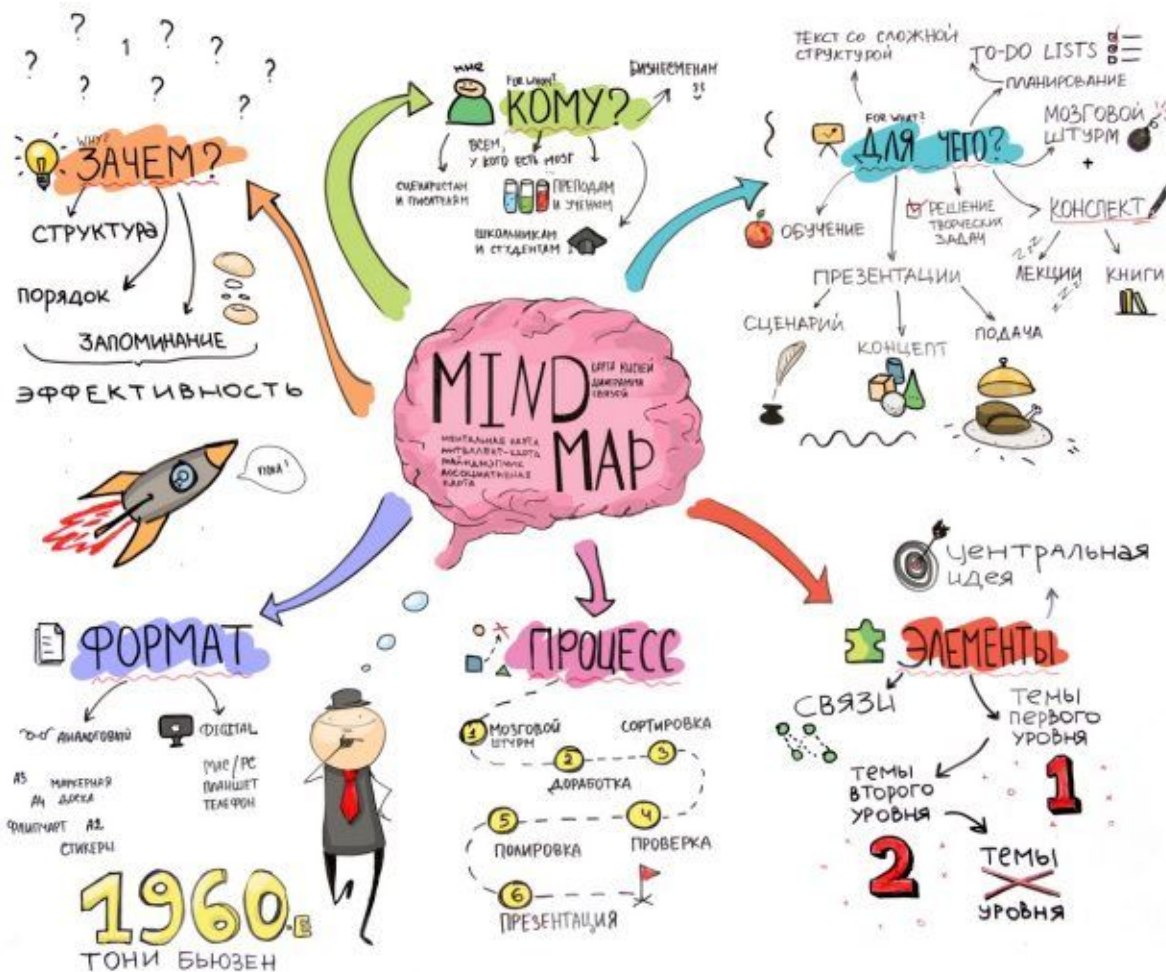 ? ? 1 ? ? ?
? ? ? ?
WHY?
ЗАЧЕМ?
СТРУКТУРА
ПОРЯДОК
ЗАПОМИНАНИЕ
ЭФФЕКТИВНОСТЬ
ПОКА!
МНЕ
FOR WHOM?
КОМУ?
БИЗНЕСМЕНАМ
$$
ВСЕМ,
У КОГО ЕСТЬ МОЗГ
СЦЕНАРИСТАМ
И ПИСАТЕЛЯМ
ПРЕПОДАМ
И УЧЕНЫМ
ШКОЛЬНИКАМ
И СТУДЕНТАМ
ТЕКСТ СО СЛОЖНОЙ
СТРУКТУРОЙ
TO-DO LISTS
ПЛАНИРОВАНИЕ
FOR WHAT?
ДЛЯ ЧЕГО?
МОЗГОВОЙ
ШТУРМ
+
КОНСПЕКТ
ZZZ
ЛЕКЦИИ
ZZZ
КНИГИ
ОБУЧЕНИЕ
РЕШЕНИЕ
ТВОРЧЕСКИХ
ЗАДАЧ
ПРЕЗЕНТАЦИИ
СЦЕНАРИЙ
КОНЦЕПТ
ПОДАЧА
MIND
КАРТА МЫСЛЕЙ
ДИАГРАММА
СВЯЗЕЙ
MAP
МЕНТАЛЬНАЯ КАРТА
ИНТЕЛЛЕКТ-КАРТА
МАЙНДМЭППИНГ
АССОЦИАТИВНАЯ
КАРТА
ФОРМАТ
АНАЛОГОВЫЙ
DIGITAL
А3
МАРКЕРНАЯ
ДОСКА
А4
ФЛИПЧАРТ
А2
СТИКЕРЫ
MAC/PC
ПЛАНШЕТ
ТЕЛЕФОН
1960-Е
ТОНИ БЬЮЗЕН
ПРОЦЕСС
1 МОЗГОВОЙ
ШТУРМ
2
ДОРАБОТКА
СОРТИРОВКА
3
4
ПРОВЕРКА
5
ПОЛИРОВКА
6
ПРЕЗЕНТАЦИЯ
ЦЕНТРАЛЬНАЯ
ИДЕЯ
ЭЛЕМЕНТЫ
СВЯЗИ
ТЕМЫ
ПЕРВОГО
УРОВНЯ
1
ТЕМЫ
ВТОРОГО
УРОВНЯ
2
ТЕМЫ
X
УРОВНЯ